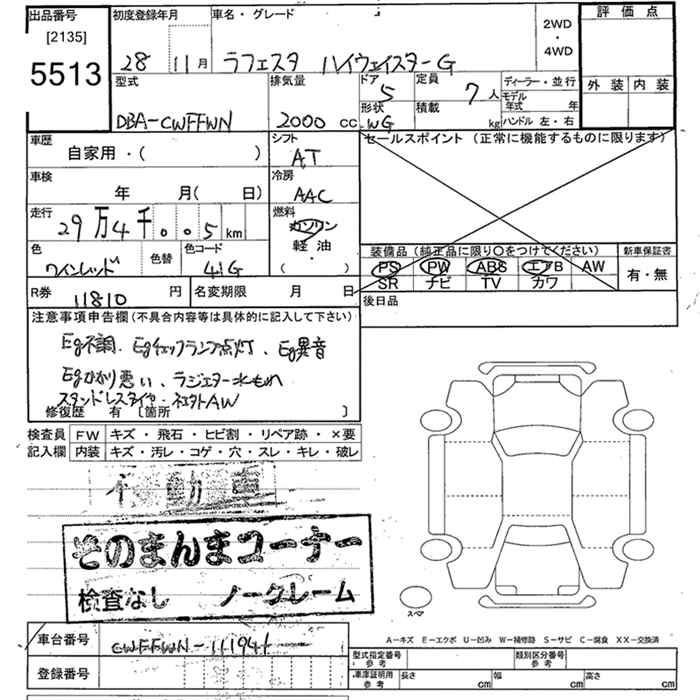 出品番号 初度登録年月 車名・グレード 2WD・4WD 評価点
[2135]
5513 28 11月 ラフェスタ ハイウェイスターG
型式 排気量 ドア 5 定員 7人 ディーラー・並行 外装 内装
モデル年式 年
DBA-CWFFWN 2000 cc 形状 WG 積載 kg ハンドル 左・右
車歴 シフト セールスポイント (正常に機能するものに限ります)
自家用・( ) AT
車検 冷房
年 月( 日) AAC
走行 燃料
29万4千005km ガソリン
軽油
色 色替 色コード ・ 装備品 (純正品に限り○をつけてください) 新車保証書
ワインレッド 41G ( ) PS PW ABS エアB AW 有・無
SR ナビ TV カワ
R券 11810 円 名変期限 月 日 後日品
注意事項申告欄 (不具合内容等は具体的に記入して下さい)
Eg不調、Egチェックランプ点灯、Eg異音
Egかかり悪い、ラジエター水もれ
スタッドレスタイヤ・社外AW
修復歴 有 [箇所 ]
検査員 FW キズ・飛石・ヒビ割・リペア跡・×要
記入欄 内装 キズ・汚レ・コゲ・穴・スレ・キレ・破レ
不動車
そのまんまコーナー
検査なし ノークレーム
スペア
A−キズ E−エクボ U−凹み W−補修跡 S−サビ C−腐食 XX−交換済
車台番号 CWFFWN-111941
型式指定番号 参考 類別区分番号 参考
登録番号 車庫証明用 参考 長さ cm 幅 cm 高さ cm